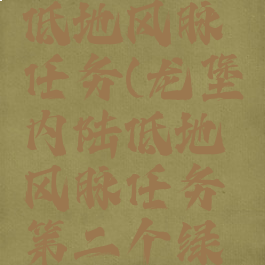 低地风脉
任务(龙堡
内陆低地
风脉任务
第二个绿